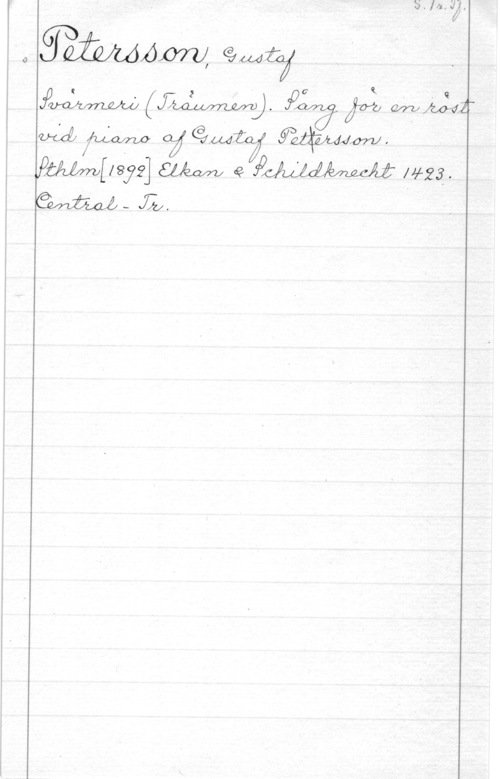 S. 1 r. 27.
Petersson, Gustaf
Svärmeri (Träumen). Sång för en röst
vid piano af Gustaf Pettersson.
Sthlm [1892] Elkan & Schildknecht 1423.
Central-Tr.